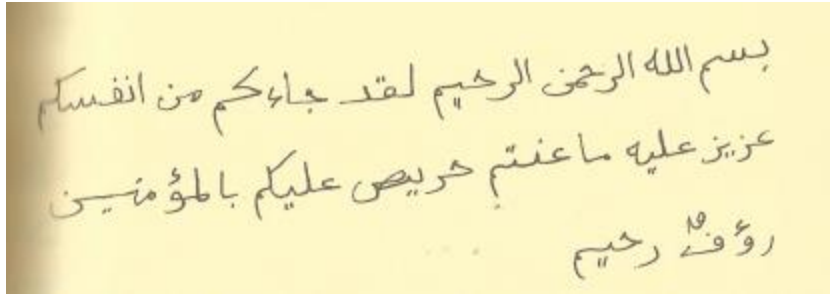 بسم الله الرحمن الرحيم لقد جاءكم من انفسكم
عزيز عليه ما عنتم حريص عليكم بالمؤمنين
رؤفٌ رحيم